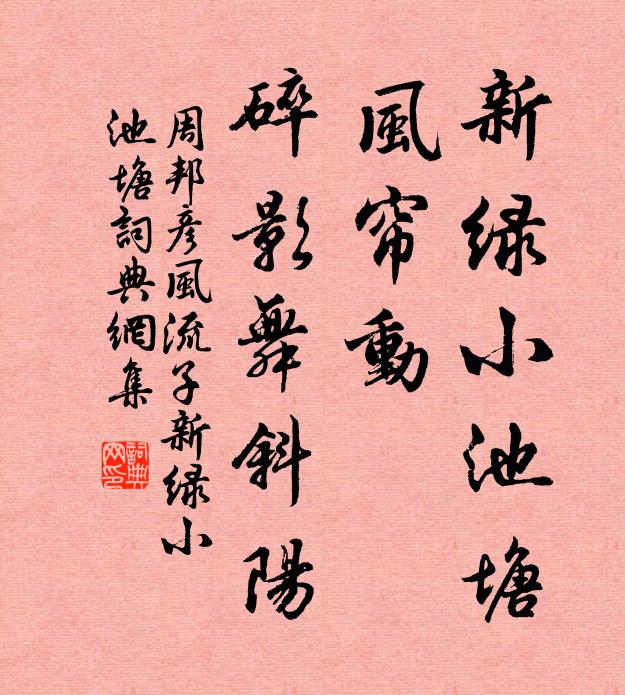 新绿小池塘
風帘動
碎影舞斜陽
周邦彦風流子新绿小
池塘詞典網集
詞典
网印